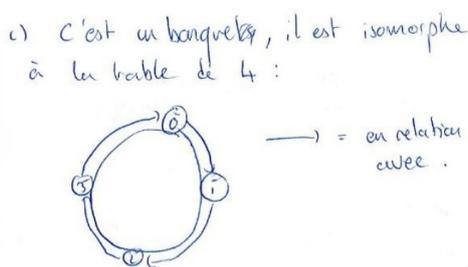 c) C'est un banquet, il est isomorphe
à la table de 4 :
0̄
→ = en relation
avec.
3̄
1̄
2̄